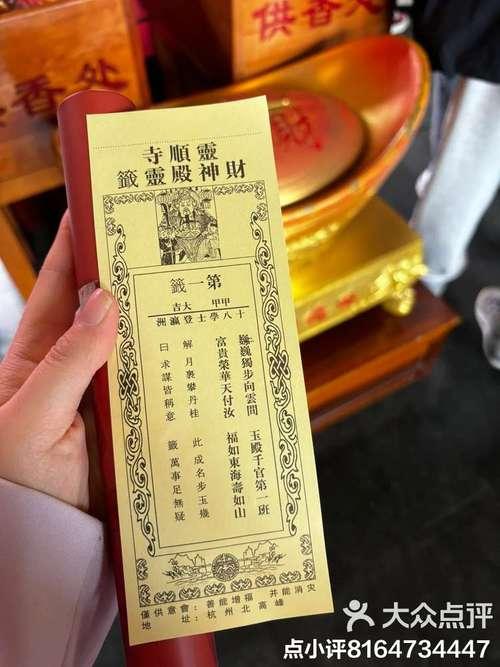 供香处
供香处
財
靈順寺
財神殿靈籤
第一籤
甲甲 大吉
十八學士登瀛洲
巍巍獨步向雲間 玉殿千官第一班
富貴榮華天付汝 福如東海壽如山
解 月裏攀丹桂 此 成名步玉幾
曰 求謀皆稱意 籤 萬事足無疑
僅供意會：善能增福 并能消灾
地 址：杭州北高峰
大众点评
点小评8164734447